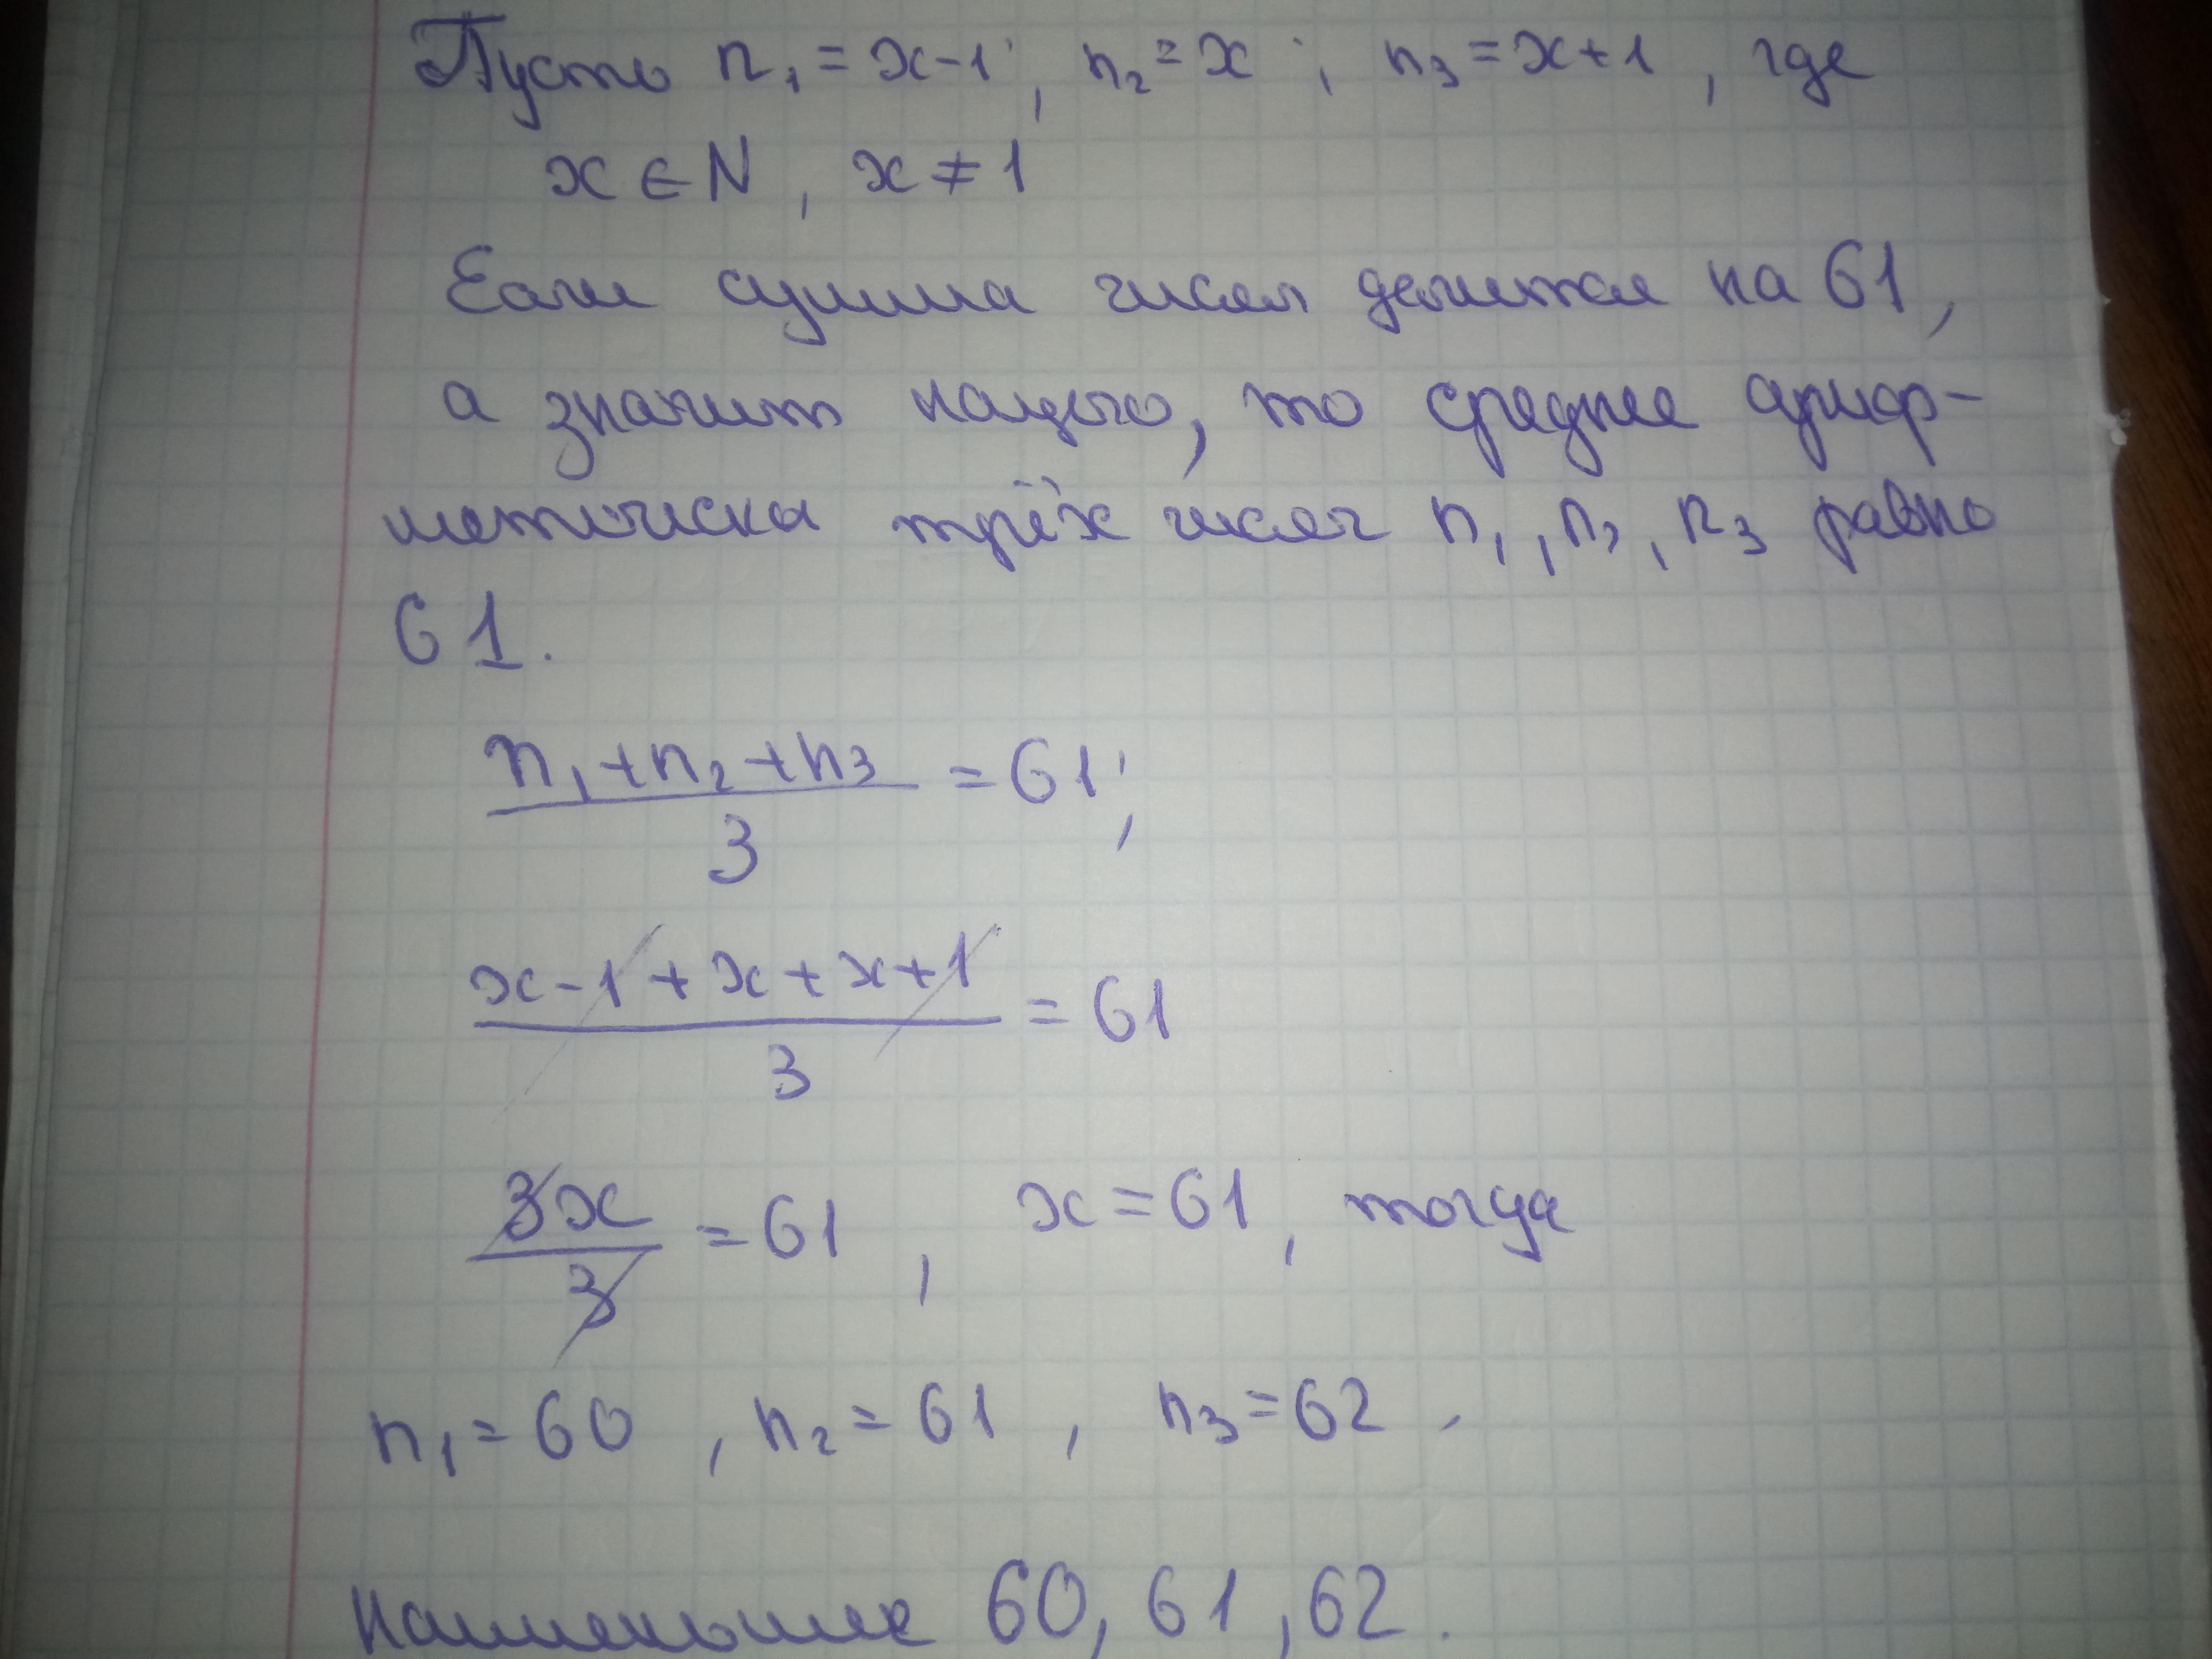 Пусть n₁ = x-1, n₂ = x, n₃ = x+1, где
x ∈ N, x ≠ 1
Если сумма чисел делится на 61,
а значит нацело, то среднее ариф-
метическа трёх чисел n₁, n₂, n₃ равно
61.
(n₁+n₂+n₃)/3 = 61;
(x-1+x+x+1)/3 = 61
3x/3 = 61, x = 61, тогда
n₁ = 60, n₂ = 61, n₃ = 62.
Наименьшие 60, 61, 62.